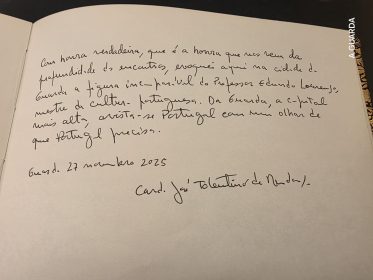 Com honra verdadeira, que é a honra que nos vem da
profundidade do encontro, evoquei aqui na cidade da
Guarda a figura incomparável do Professor Eduardo Lourenço,
mestre da cultura portuguesa. Da Guarda, a capital
mais alta, avista-se Portugal com um olhar de
que Portugal precisa.
Guarda 27 novembro 2025
Card. José Tolentino de Mendonça
A GUARDA